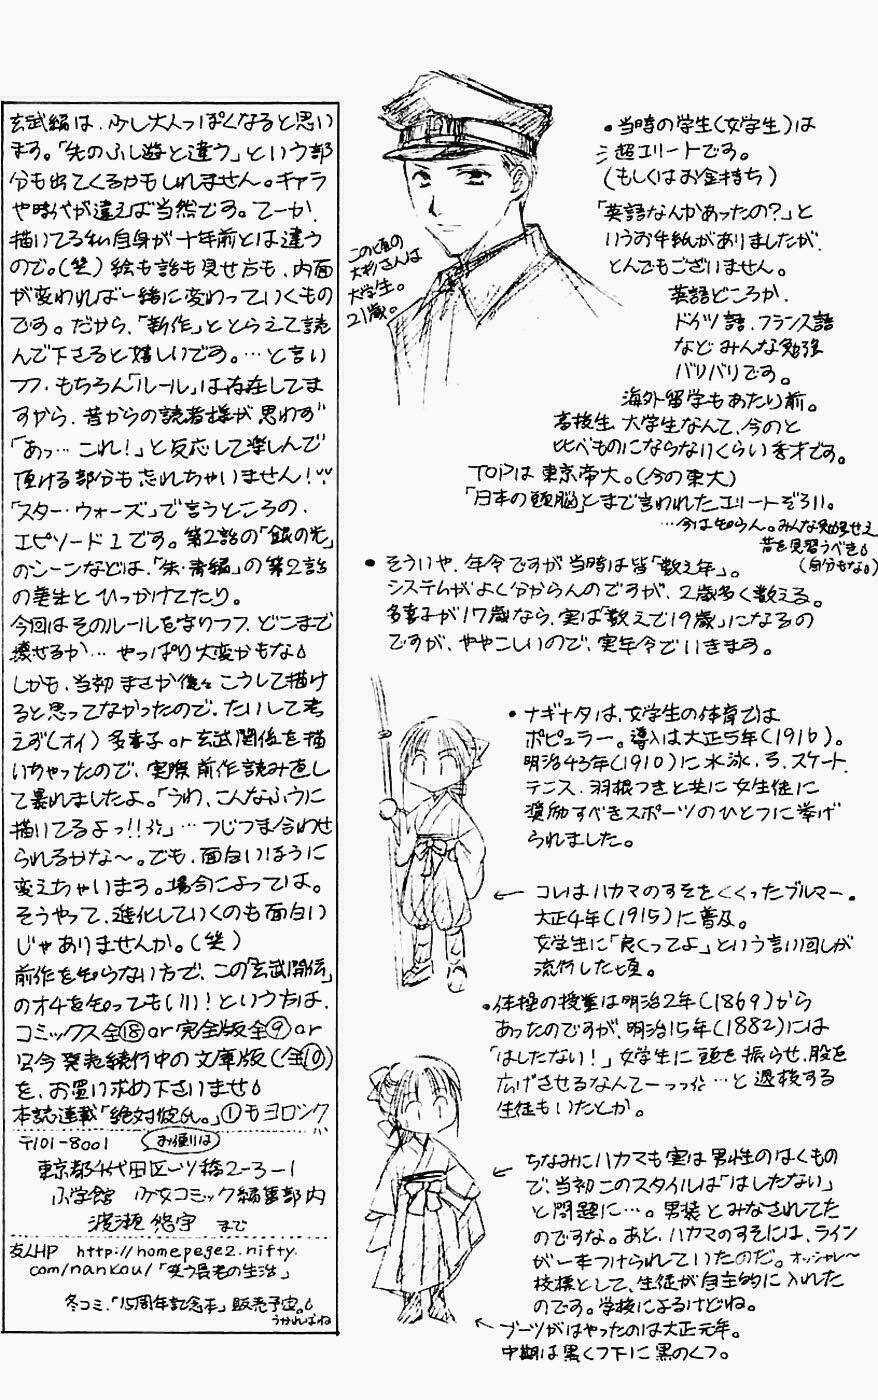 玄武編は、少し大人っぽくなると思い
ます。「先のふし遊と違う」という部
分も出てくるかもしれません。キャラ
や時代が違えば当然です。てーか、
描いてる私自身が十年前とは違う
ので。(笑)絵も話も見せ方も、内面
が変われば一緒に変わっていくもの
です。だから、「新作」ととらえて読
んで下さると嬉しいです。…と言い
つつ、もちろん「ルール」は存在してま
すから、昔からの読者様が思わず
「あっ…これ!」と反応して楽しんで
頂ける部分も忘れちゃいません!
「スター・ウォーズ」で言うところの、
エピソード1です。第2話の「銀の光」
のシーンなどは、「朱・青編」の第2話
の美生とひっかけてたり。
今回はそのルールを守りつつ、どこまで
壊せるか…やっぱり大変かもな
しかも、当初まさか後々こうして描け
ると思ってなかったので、たいして考
えず(オイ)多喜子or玄武関係を描
いちゃったので、実際前作読み直し
て暴れましたよ。「うわ、こんなふうに
描いてるよっ!!」…つじつま合わせ
られるかな〜。でも、面白いほうに
変えちゃいます。場合によっては。
そうやって、進化していくのも面白い
じゃありませんか。(笑)
前作を知らない方で、この「玄武開伝」
のオチを知ってもいい!という方は、
コミックス全⑱or完全版全⑨or
只今発売続行中の文庫版(全⑩)
を、お買い求め下さいませ
本誌連載「絶対彼氏。」①もヨロシク
〒101-8001 お便りは
東京都千代田区一ツ橋2-3-1
小学館 少女コミック編集部内
渡瀬悠宇 まで
友人HP http://homepage2.nifty.
com/nankou/「笑う長老の生活」
冬コミ、「15周年記念本」販売予定。
うかればね
この頃の
大杉さんは
大学生。
21歳。
・当時の学生(女学生)は
超エリートです。
(もしくはお金持ち)
「英語なんかあったの?」と
いうお手紙がありましたが、
とんでもございません。
英語どころか、
ドイツ語、フランス語
などみんな勉強
バリバリです。
海外留学もあたり前。
高校生、大学生なんて、今のと
比べものにならないくらい秀才です。
TOPは東京帝大。(今の東大)
「日本の頭脳」とまで言われたエリートぞろい。
…今は知らん。みんな勉強せえ
昔を見習うべき
(自分もな)
・そういや、年令ですが当時は皆「数え年」。
システムがよく分からんのですが、2歳多く数える。
多喜子が17歳なら、実は「数えで19歳」になるの
ですが、ややこしいので、実年令でいきます。
・ナギナタは、女学生の体育では
ポピュラー。導入は大正5年(1916)。
明治43年(1910)に水泳、弓、スケート、
テニス、羽根つきと共に女生徒に
奨励すべきスポーツのひとつに挙げ
られました。
← コレはハカマのすそをくくったブルマー。
大正4年(1915)に普及。
女学生に「良くってよ」という言い回しが
流行した頃。
・体操の授業は明治2年(1869)から
あったのですが、明治15年(1882)には
「はしたない!」女学生に頭を振らせ、股を
広げさせるなんてーっっ…と退校する
生徒もいたとか。
← ちなみにハカマも実は男性のはくもの
で、当初このスタイルは「はしたない」
と問題に…。男装とみなされてた
のですな。あと、ハカマのすそには、ライン
が一本つけられていたのだ。オッシャレ〜
校標として、生徒が自主的に入れた
のです。学校によるけどね。
← ブーツがはやったのは大正元年。
中期は黒くつ下に黒のくつ。